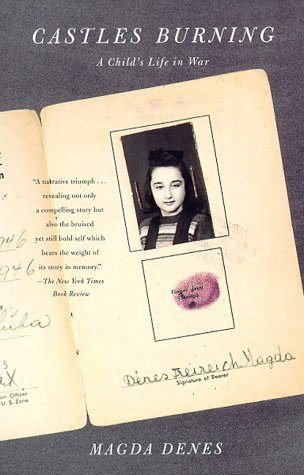 CASTLES BURNING
A Child's Life in War
"A narrative triumph . . .
revealing not only
a compelling story but
also the bruised
yet still bold self which
bears the weight of
its story in memory."
—The New York Times
Book Review
946
946
Dénes Freireich Magda
Signature of Bearer
on Officer
U. S. Zone
MAGDA DENES